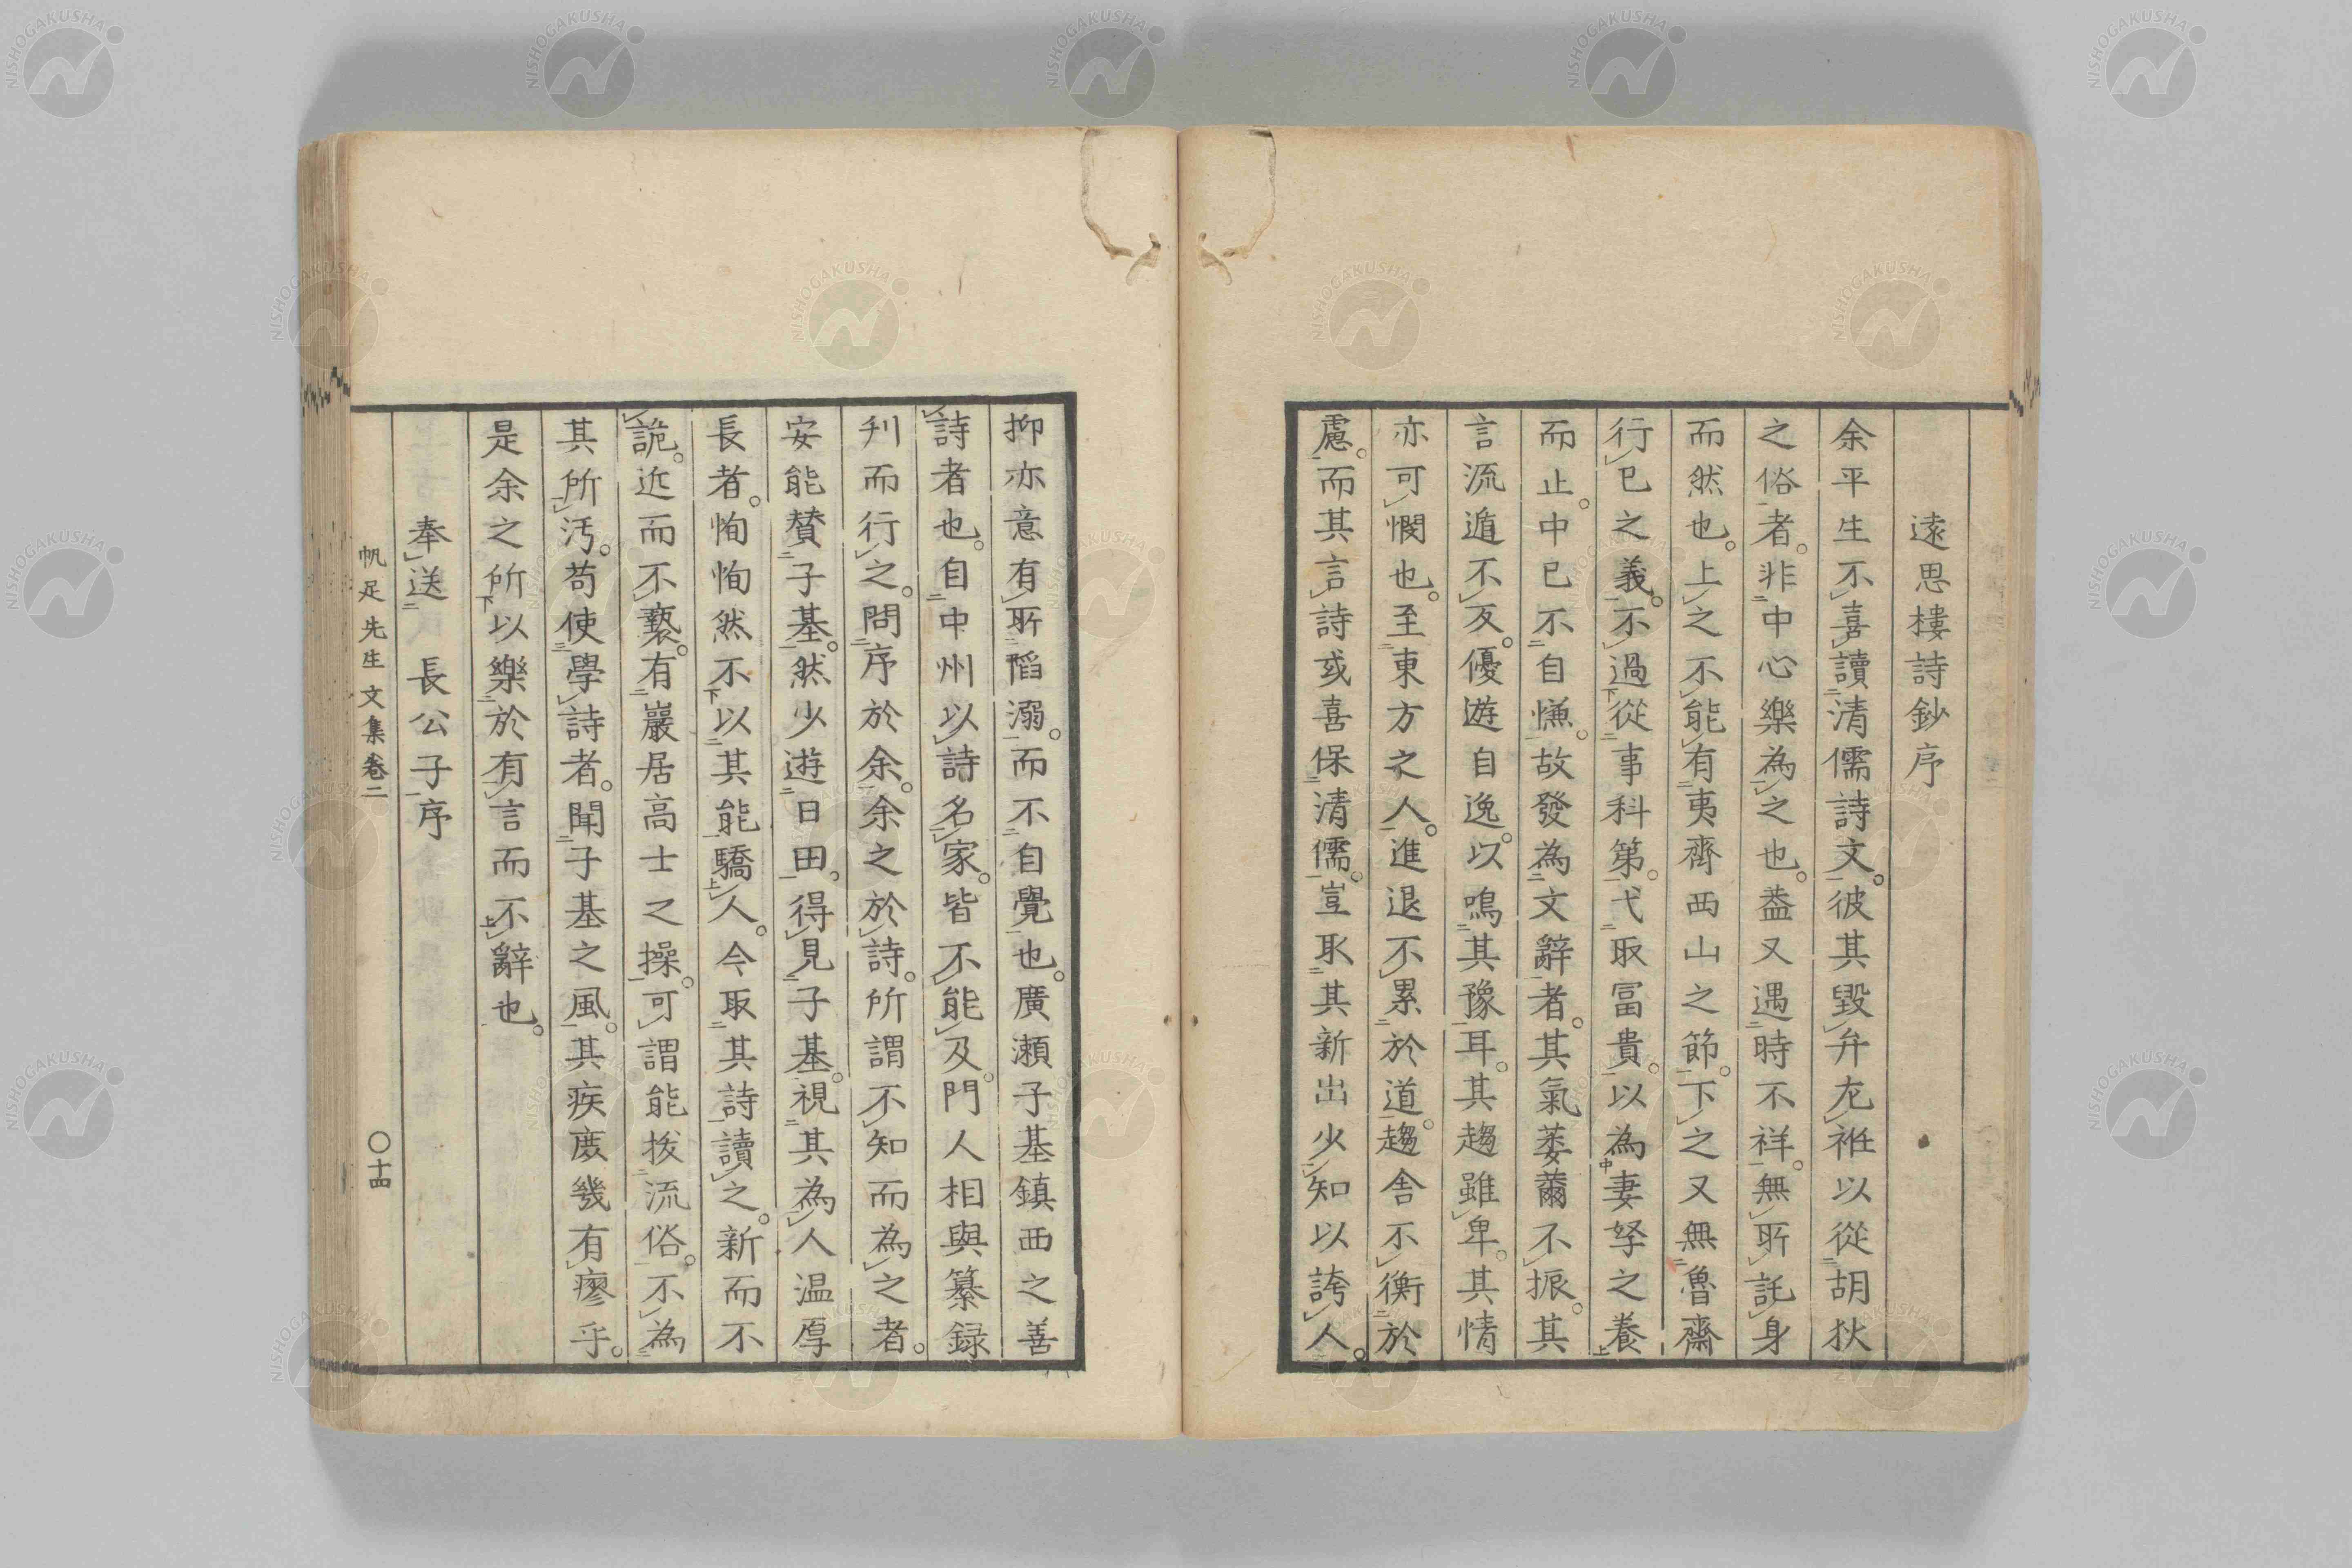 遠思樓詩鈔序
余平生不喜讀清儒詩文。彼其毀弁尨袵以從胡狄
之俗者。非中心樂為之也。盖又遇時不祥。無所託身
而然也。上之不能有夷齊西山之節。下之又無魯齋
行已之義。不過從事科第。弋取冨貴。以為妻孥之養
而止。中已不自慊。故發為文辭者。其氣萎薾不振。其
言流遁不反。優遊自逸。以鳴其豫耳。其趨雖卑。其情
亦可憫也。至東方之人。進退不累於道。趨舎不衡於
慮。而其言詩或喜保清儒。豈取其新出少知以誇人。
抑亦意有所慆溺。而不自覺也。廣瀬子基鎮西之善
詩者也。自中州以詩名家。皆不能及。門人相與纂録
刋而行之。問序於余。余之於詩。所謂不知而為之者。
安能賛子基。然少遊日田。得見子基。視其為人温厚
長者。恂恂然不以其能驕人。今取其詩讀之。新而不
詭。近而不褻。有巖居高士之操。可謂能拔流俗。不為
其所汚。苟使學詩者。聞子基之風。其疾庻幾有瘳乎。
是余之所以樂於有言而不辭也。
奉送 長公子序
帆足先生文集卷二 〇十四
NISHOGAKUSHA